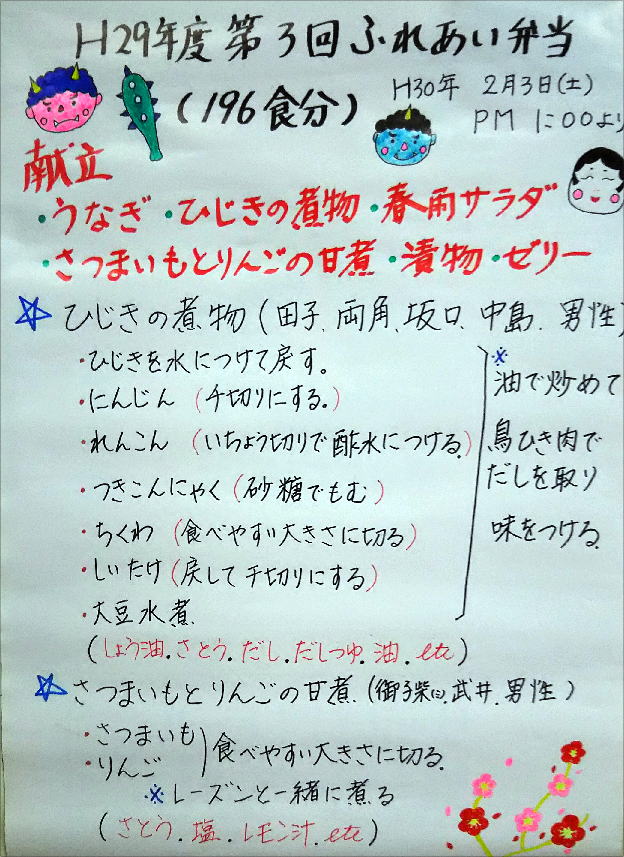 H29年度第3回ふれあい弁当
(196食分)
H30年 2月3日(土)
PM 1:00より
献立
・うなぎ ・ひじきの煮物 ・春雨サラダ
・さつまいもとりんごの甘煮 ・漬物 ・ゼリー
☆ ひじきの煮物(田子、両角、坂口、中島、男性)
・ひじきを水につけて戻す。
・にんじん (千切りにする。)
・れんこん (いちょう切りで酢水につける。)
・つきこんにゃく(砂糖でもむ)
・ちくわ (食べやすい大きさに切る)
・しいたけ(戻して千切りにする)
・大豆水煮
※
油で炒めて
鳥ひき肉で
だしを取り
味をつける。
(しょう油.さとう.だし.だしつゆ.油.etc)
☆ さつまいもとりんごの甘煮.(御子柴㊁.武井.男性)
・さつまいも
・りんご
食べやすい大きさに切る.
※レーズンと一緒に煮る
(さとう.塩.レモン汁.etc)